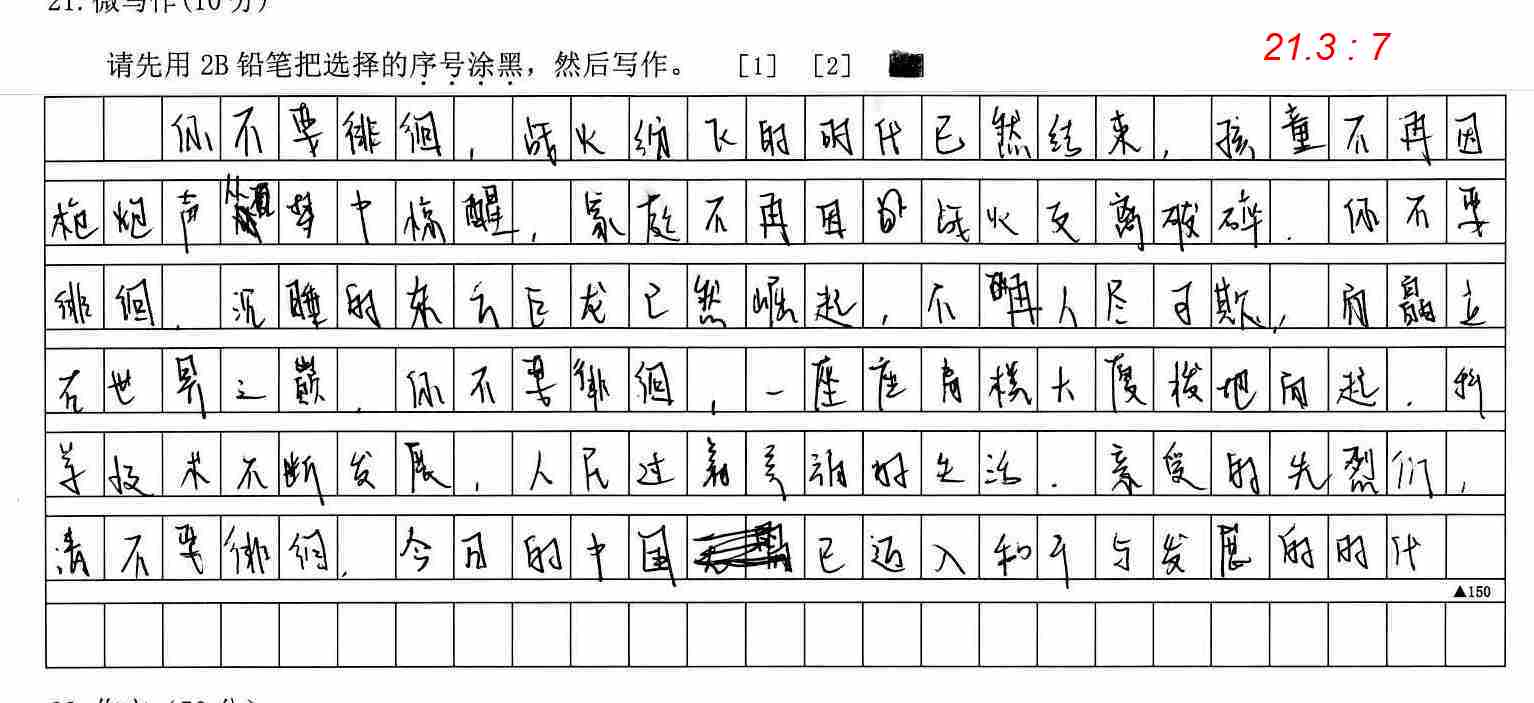 21. 微写作(10分)
请先用 2B 铅笔把选择的序号涂黑，然后写作。 [1] [2]
21.3 : 7
你不要徘徊，战火纷飞的时代已然结束，孩童不再因
枪炮声从梦中惊醒，家庭不再因战火支离破碎．你不要
徘徊，沉睡的东方巨龙已然崛起，不再人尽可欺，而矗立
在世界之巅．你不要徘徊，一座座高楼大厦拔地而起．科
学技术不断发展，人民过着美满的生活．亲爱的先烈们，
请不要徘徊，今日的中国已迈入和平与发展的时代
▲150